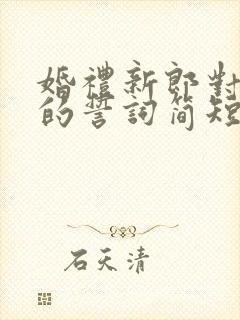 婚禮新郎對
的誓詞简短
石天清